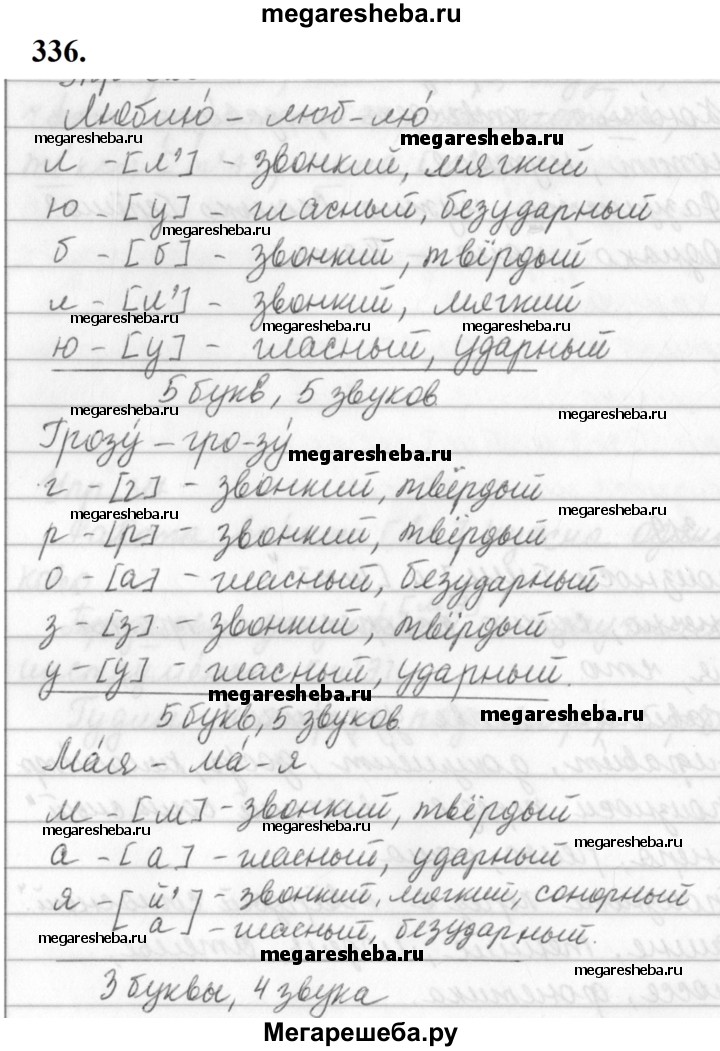 megaresheba.ru
336.
Люблю́ – люб-лю́
megaresheba.ru megaresheba.ru
л – [л’] – звонкий, мягкий
ю – [у] – гласный, безударный
megaresheba.ru
б – [б] – звонкий, твёрдый
л – [л’] – звонкий, мягкий
megaresheba.ru megaresheba.ru megaresheba.ru
ю – [у] – гласный, ударный
5 букв, 5 звуков
megaresheba.ru megaresheba.ru
Грозу́ – гро-зу́
megaresheba.ru
г – [г] – звонкий, твёрдый
megaresheba.ru megaresheba.ru
р – [р] – звонкий, твёрдый
о – [а] – гласный, безударный
з – [з] – звонкий, твёрдый
у – [у] – гласный, ударный.
megaresheba.ru
5 букв, 5 звуков
megaresheba.ru
Ма́я – ма́-я
м – [м] – звонкий, твёрдый
megaresheba.ru megaresheba.ru
а – [а] – гласный, ударный
я – [й’ – звонкий, мягкий, сонорный
а] – гласный, безударный.
megaresheba.ru megaresheba.ru
megaresheba.ru
3 буквы, 4 звука
Мегарешеба.ру